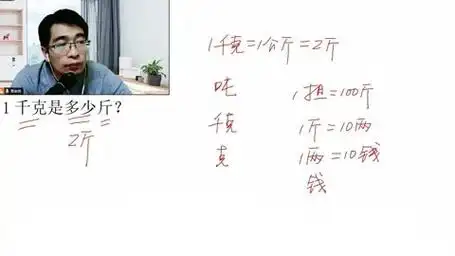 1千克=1公斤=2斤
1千克是多少斤?
2斤
吨
1担=100斤
千克
1斤=10两
克
1两=10钱
钱